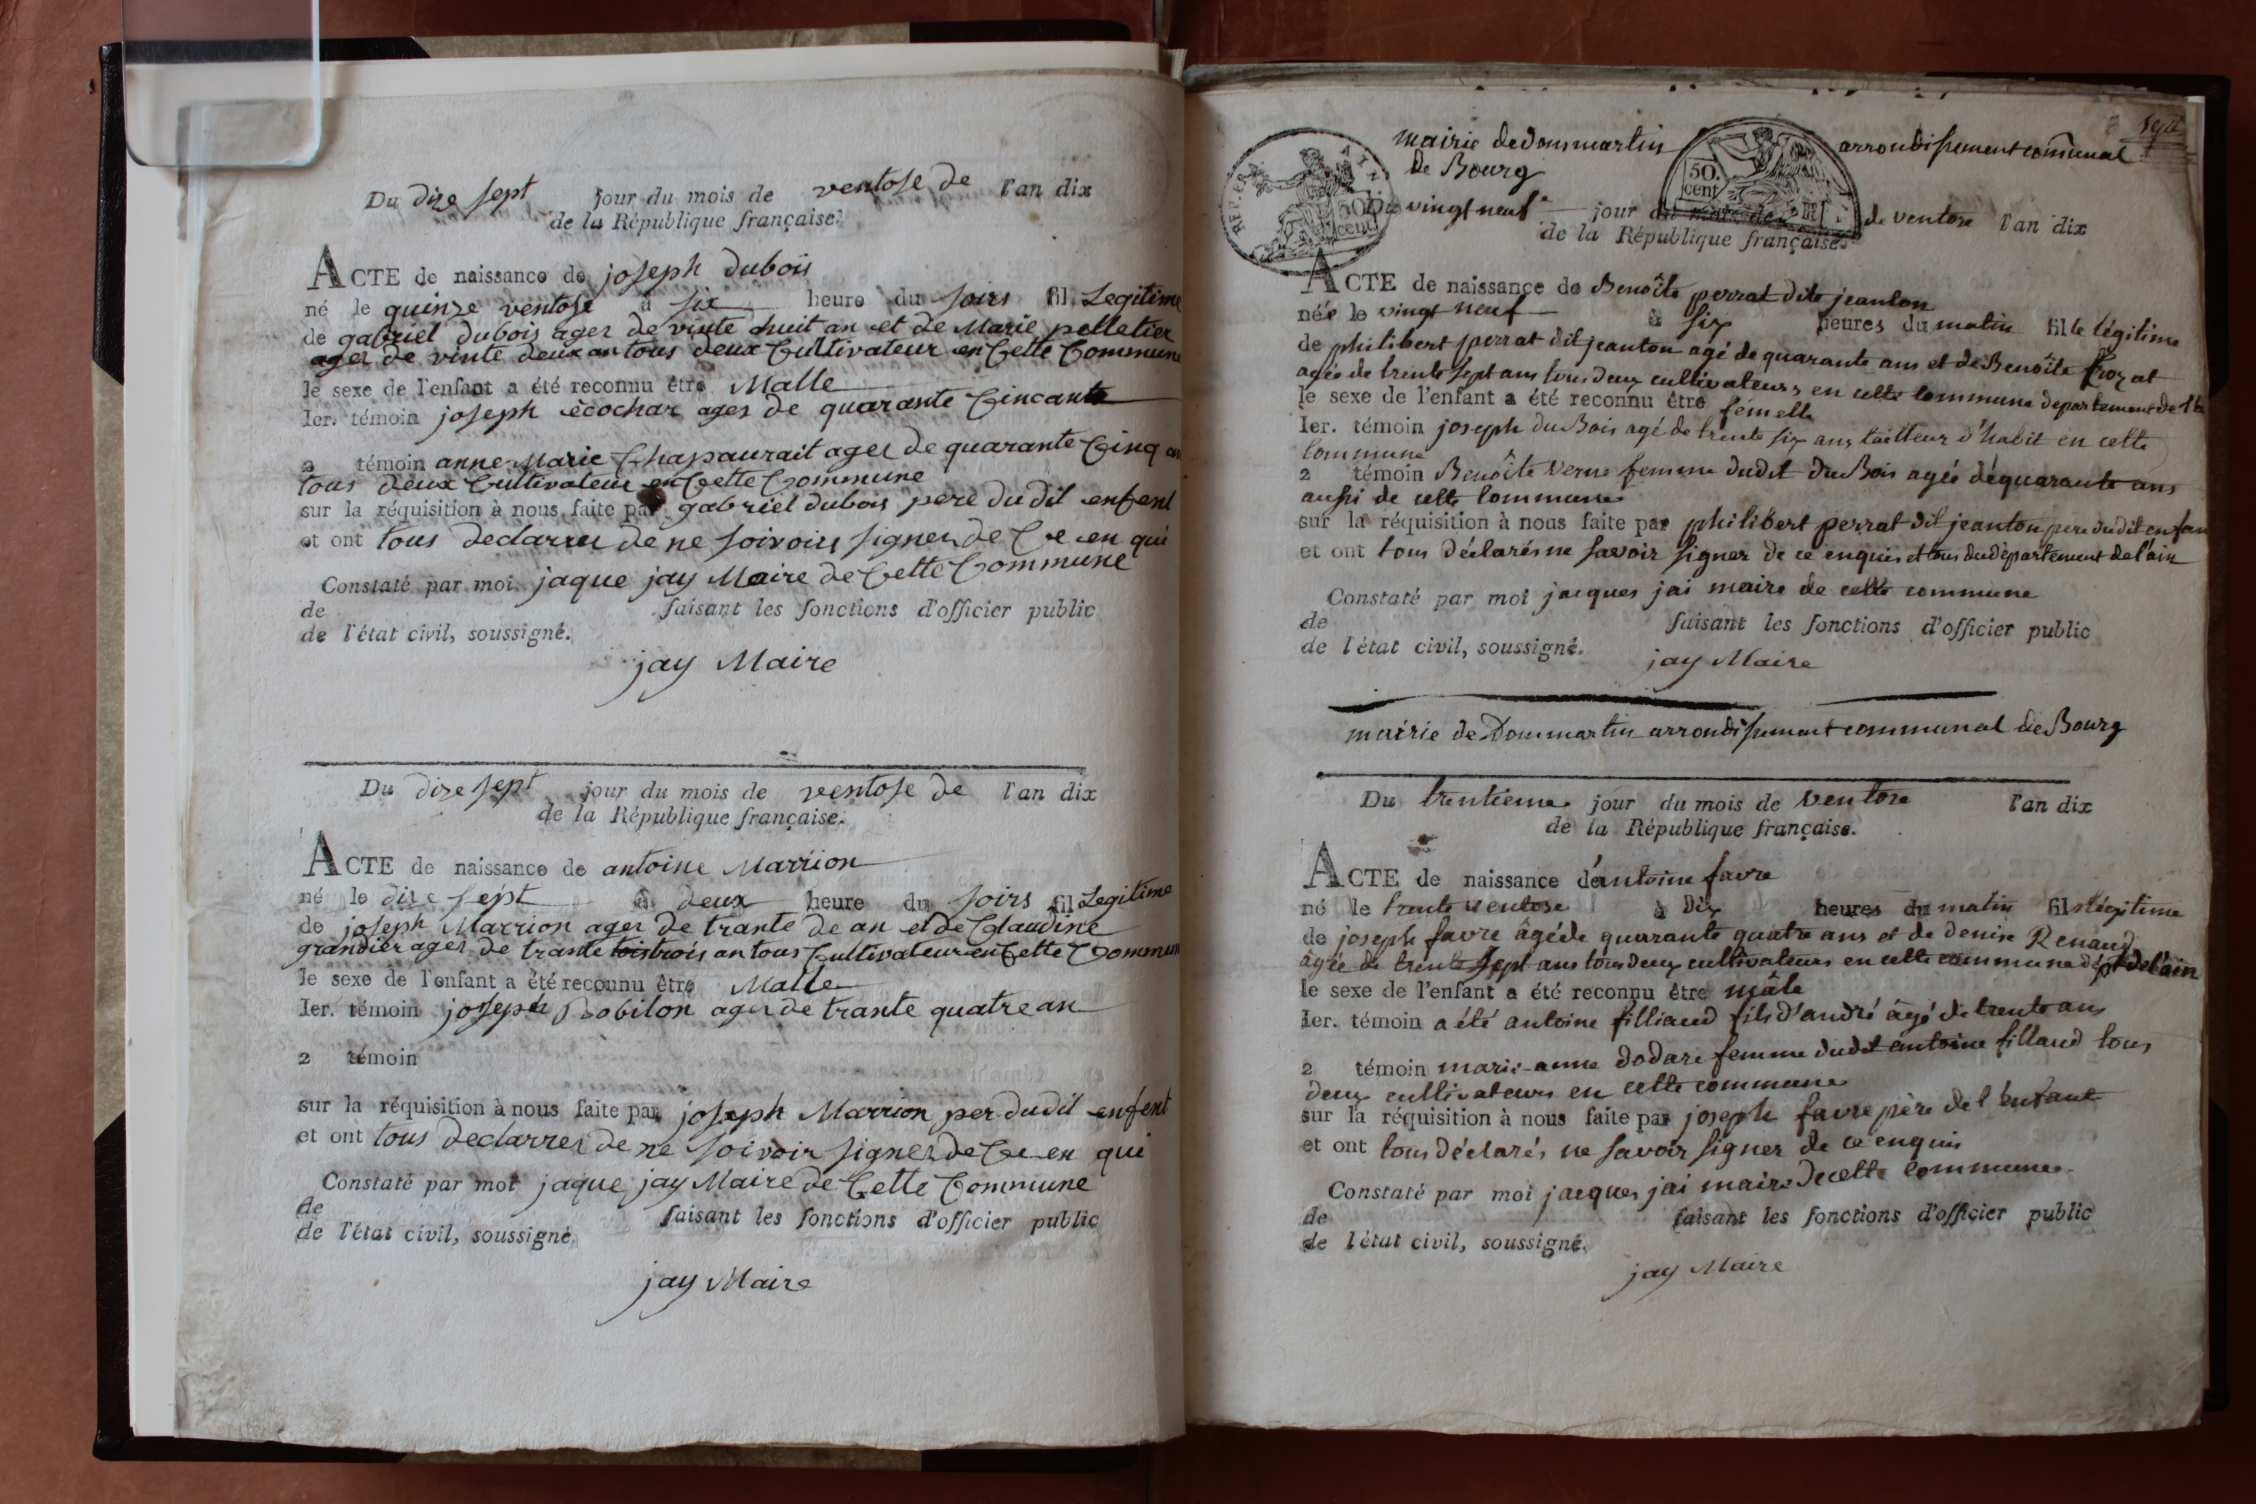 Du dixe sept jour du mois de ventose de l'an dix
de la République française.
ACTE de naissance de joseph dubois
né le quinze ventose à six heure du soirs fil Legitime
de gabriel dubois ager de vinte huit an et de Marie pelletier
ager de vinte deux an tous deux Cultivateur en Cette Commune
le sexe de l'enfant a été reconnu être Malle
Ier. témoin joseph ècochar ager de quarante Cincante
2 témoin anne Marie Chapaurait ager de quarante Cinq an
tous deux Cultivateur en Cette Commune
sur la réquisition à nous faite par gabriel dubois pere du dit enfent
et ont tous declarrer de ne soivoir signer de Ce en qui
Constaté par moi jaque jay Maire de Cette Commune
de faisant les fonctions d'officier public
de l'état civil, soussigné.
jay Maire
Du dixe sept jour du mois de ventose de l'an dix
de la République française.
ACTE de naissance de antoine Marrion
né le dixe sept à deux heure du soirs fil Legitime
de joseph Marrion ager de trante de an et de Claudine
grandier ager de trante trois an tous Cultivateur en Cette Commune
le sexe de l'enfant a été reconnu être Malle
Ier. témoin joseph Bobilon ager de trante quatre an
2 témoin
sur la réquisition à nous faite par joseph Marrion per du dit enfent
et ont tous declarrer de ne soivoir signer de Ce en qui
Constaté par moi jaque jay Maire de Cette Commune
de faisant les fonctions d'officier public
de l'état civil, soussigné.
jay Maire
Sept
mairie de dommartin arrondissement communal
de Bourg
50. cent
Du vingt neuf jour du mois de de ventose l'an dix
de la République française.
ACTE de naissance de Benoîte perrat dite jeanton
née le vingt neuf à six heures du matin fille légitime
de philibert perrat dit jeanton agé de quarante ans et de Benoîte froz at
agée de trente sept ans tous deux cultivateurs en cette commune departement de l'ain
le sexe de l'enfant a été reconnu être fémelle
Ier. témoin joseph du Bois agé de trente six ans tailleur d'habit en cette
commune
2 témoin Benoîte Verne femme dudit du Bois agée de quarante ans
aussi de cette commune
sur la réquisition à nous faite par philibert perrat dit jeanton pere du dit enfan
et ont tous déclarés ne savoir signer de ce enquis et tous du departement de l'ain
Constaté par moi jacques jai maire de cette commune
de faisant les fonctions d'officier public
de l'état civil, soussigné.
jay Maire
mairie de Dommartin arrondissement communal de Bourg
Du trentieme jour du mois de ventose l'an dix
de la République française.
ACTE de naissance d'antoine favre
né le trente ventose à dix heures du matin fils légitime
de joseph favre âgé de quarante quatre ans et de denise Renaud
agée de trente sept ans tous deux cultivateurs en cette commune dépt de l'ain
le sexe de l'enfant a été reconnu être mâle
Ier. témoin a été antoine filliaud fils d'andré âgé de trente ans
2 témoin marie-anne dodare femme dudit antoine filland tous
deux cultivateurs en cette commune
sur la réquisition à nous faite par joseph favre père de l'enfant
et ont tous déclarés ne savoir signer de ce enquis
Constaté par moi jacques jai maire de cette commune
de faisant les fonctions d'officier public
de l'état civil, soussigné.
jay Maire